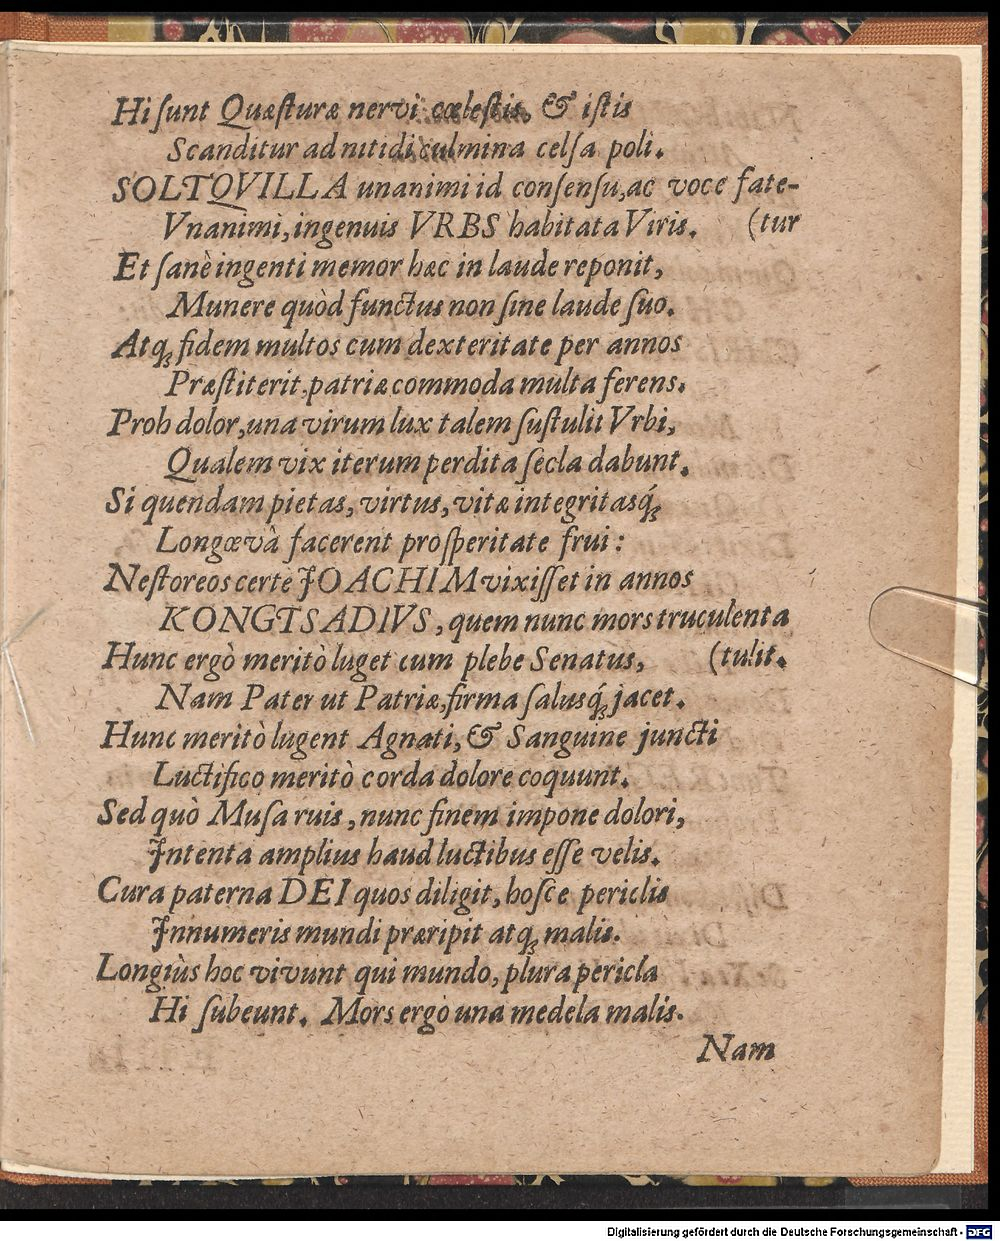 Hi ſunt Quæſturæ nervi cœleſtis, & iſtis
Scanditur ad nitidi culmina celſa poli.
SOLTQVILLA unanimi id conſenſu, ac voce fate-
Vnanimi, ingenuis VRBS habitata Viris. (tur
Et ſanè ingenti memor hæc in laude reponit,
Munere quòd functus non ſine laude ſuo.
Atq́; fidem multos cum dexteritate per annos
Præſtiterit, patriæ commoda multa ferens.
Proh dolor, una virum lux talem ſuſtulit Vrbi,
Qualem vix iterum perdita ſecla dabunt.
Si quendam pietas, virtus, vitæ integritasq́;
Longævâ facerent proſperitate frui:
Neſtoreos certè JOACHIM vixiſſet in annos
KONGTSADIVS, quem nunc mors truculenta
Hunc ergò meritò luget cum plebe Senatus, (tulit.
Nam Pater ut Patriæ, firma ſalusq́; jacet.
Hunc meritò lugent Agnati, & Sanguine juncti
Luctifico meritò corda dolore coquunt.
Sed quò Muſa ruis, nunc finem impone dolori,
Intenta amplius haud luctibus eſſe velis.
Cura paterna DEI quos diligit, hoſce periclis
Innumeris mundi præripit atq; malis.
Longiùs hoc vivunt qui mundo, plura pericla
Hi ſubeunt. Mors ergò una medela malis.
Nam
Digitalisierung gefördert durch die Deutsche Forschungsgemeinschaft - DFG